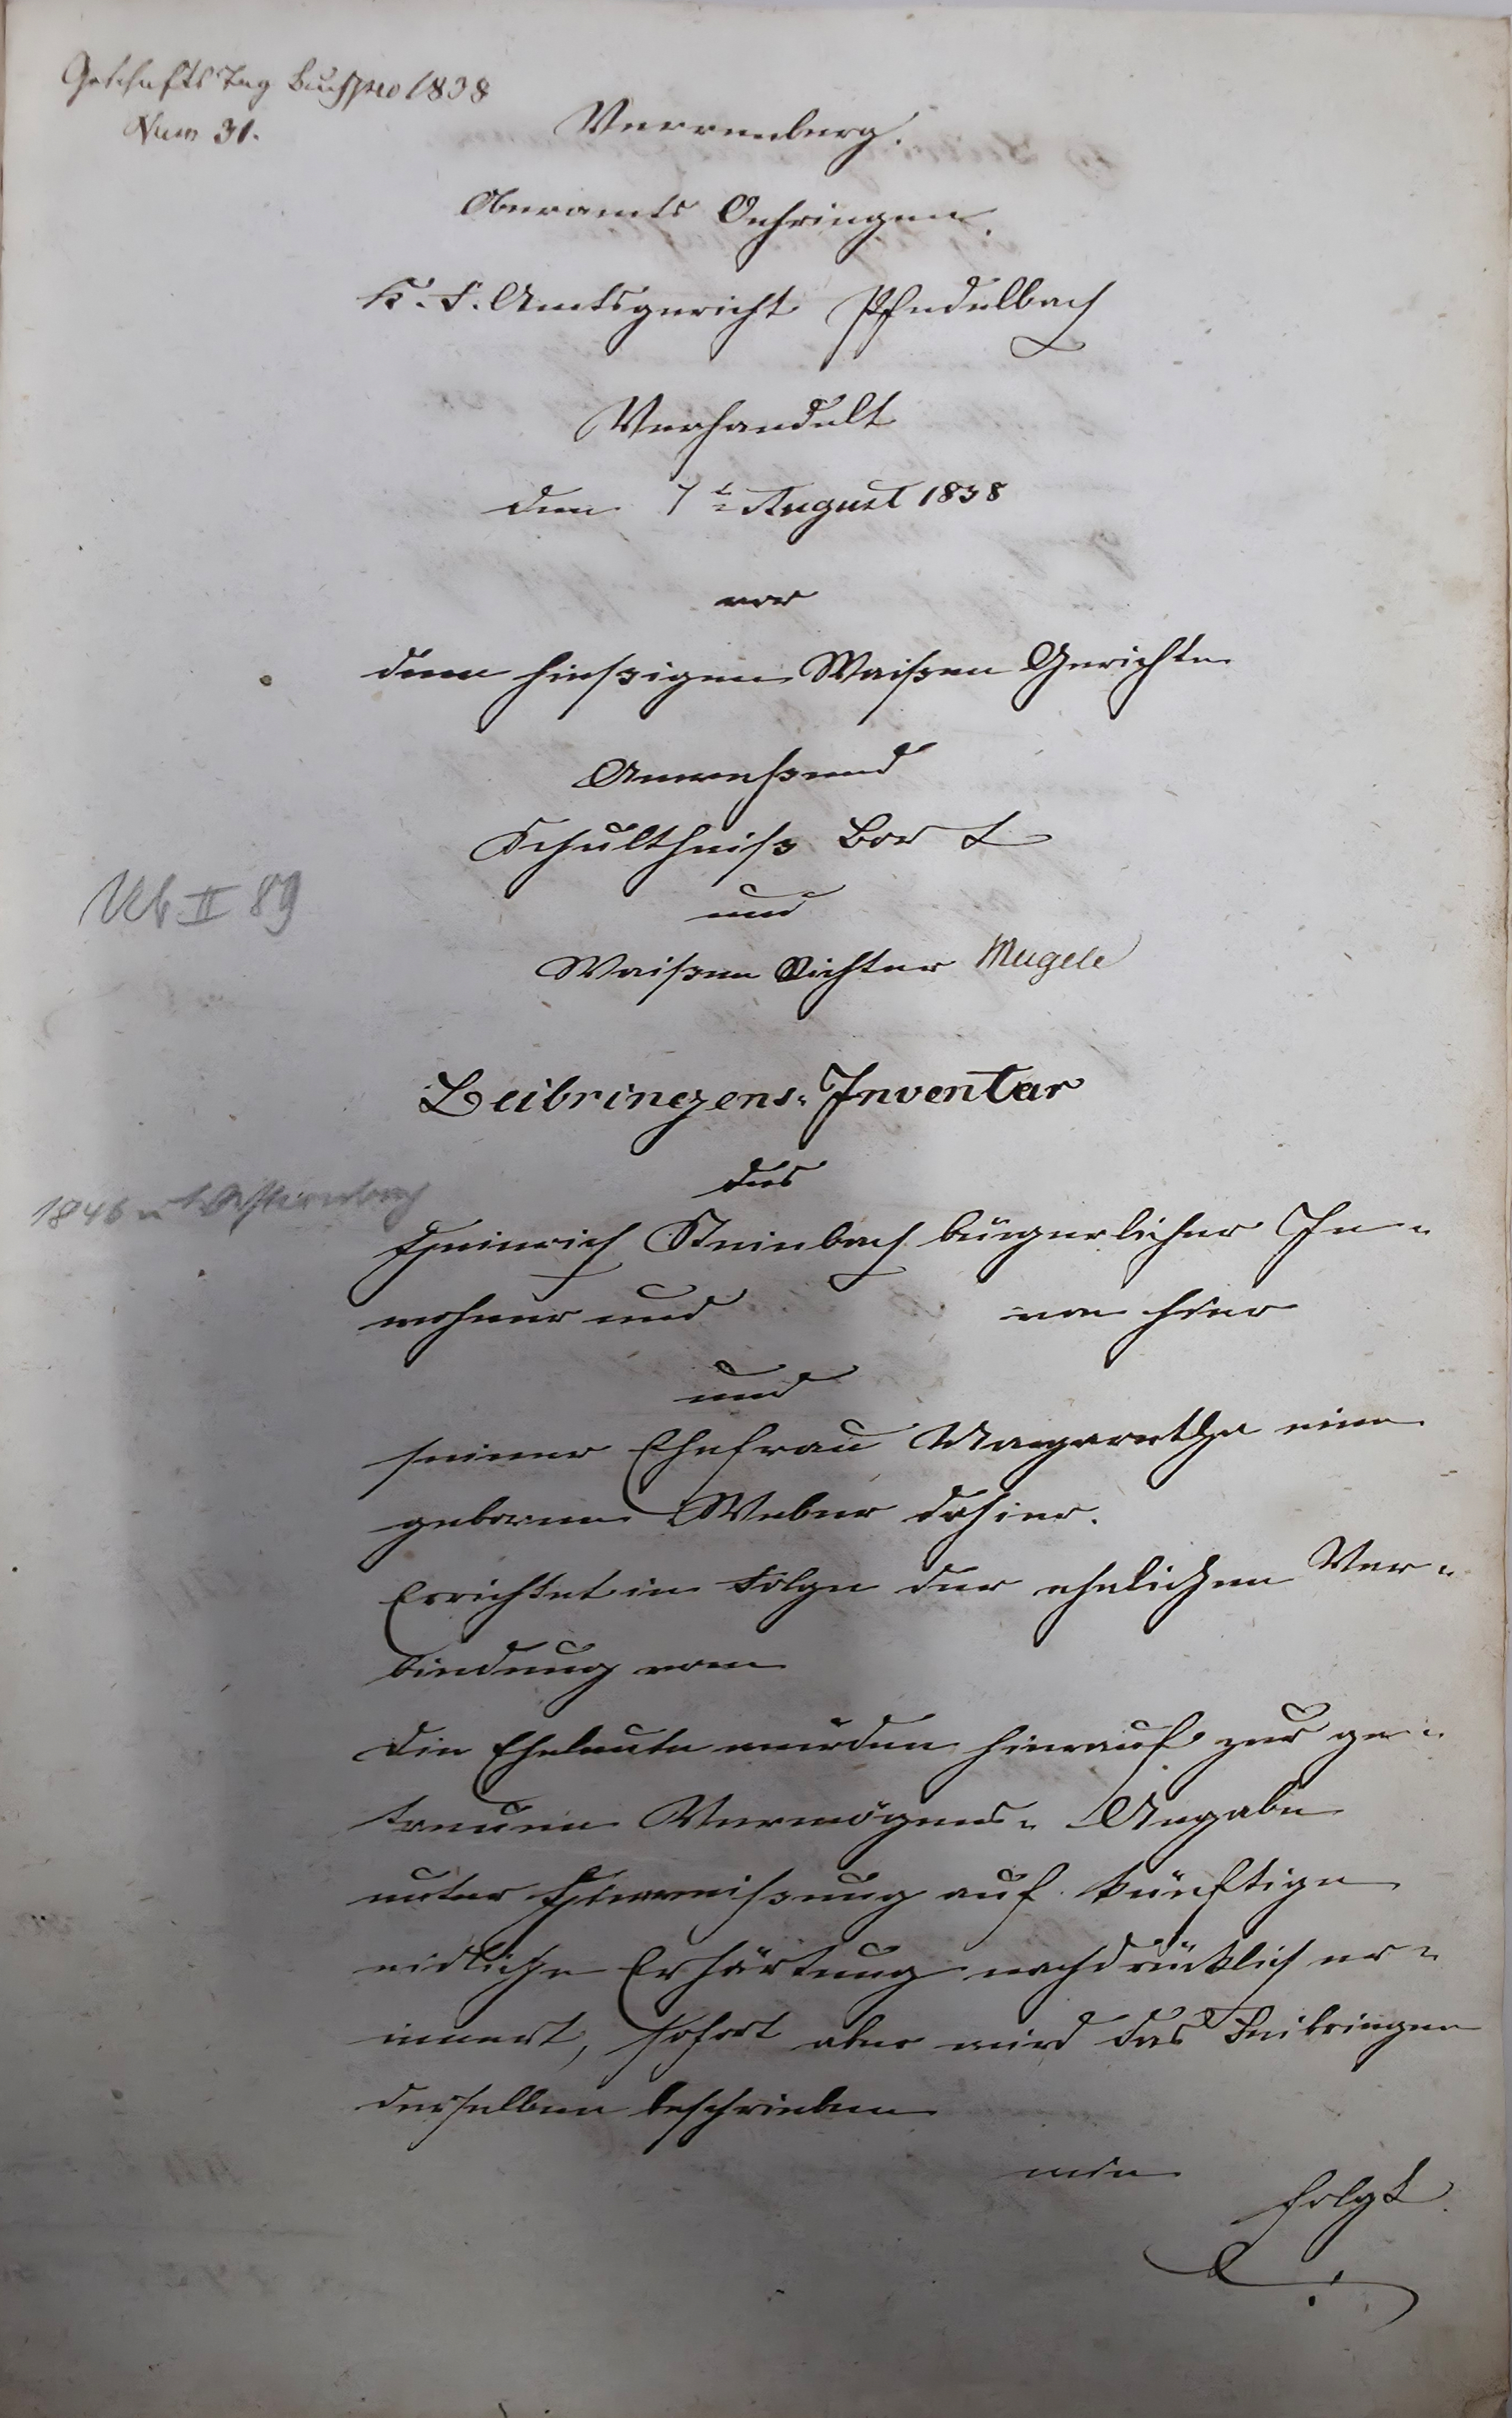 Geschäfts Tag Buch pro 1838
Num 31.
Verrenberg.
Oberamts Oehringen.
F. F. Amtsgericht Pfedelbach
Verhandelt
den 7t August 1838
vor
dem hießigen Waißen Gerichte
Anweßend
Schultheiß Bort
und
Waißen Richter Mugele
Ub II 89
Beibringens-Inventar
des
1846 n.
Heinrich Steinbach bürgerlicher In-
wohner und von hier
und
seiner Ehefrau Margaretha eine
geborene Weber dahier.
Errichtet in Folge der ehelichen Ver-
bindung vom
Die Eheleute wurden hierauf zur ge-
treuen Vermögens-Angabe
unter Hinweißung auf künftige
eidliche Erhärtung nachdrücklich er-
innert, sofort aber wird das Beibringen
derselben beschrieben
wie
folgt.